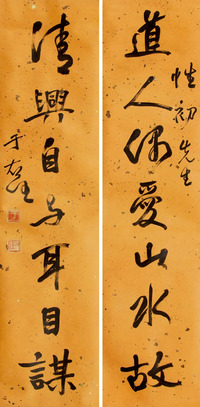 性初先生
道人偶愛山水故
清興自与耳目謀
于右任